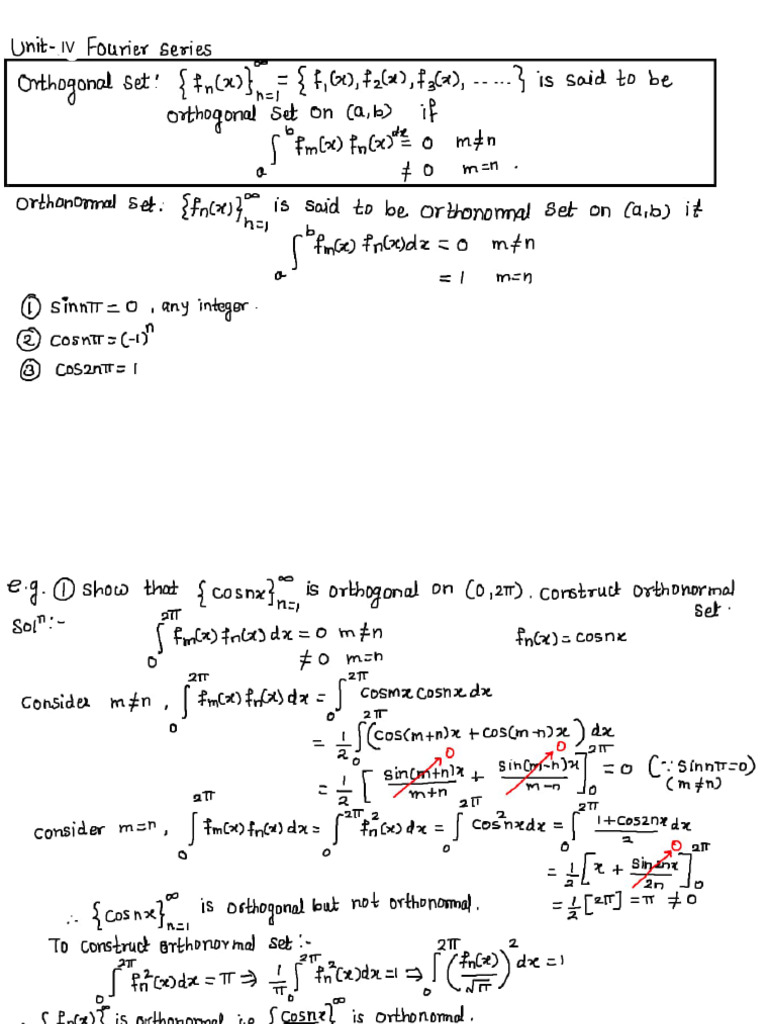 Unit-IV Fourier series
Orthogonal set: {fₙ(x)}ₙ₌₁^∞ = {f₁(x), f₂(x), f₃(x), .....} is said to be
orthogonal set on (a,b) if
∫ₐᵇ fₘ(x) fₙ(x) dx = 0 m≠n
≠ 0 m=n .
Orthonormal set: {fₙ(x)}ₙ₌₁^∞ is said to be orthonormal set on (a,b) if
∫ₐᵇ fₘ(x) fₙ(x) dx = 0 m≠n
= 1 m=n
① sin nπ = 0 , any integer .
② cos nπ = (-1)ⁿ
③ cos 2nπ = 1
e.g. ① Show that {cos nx}ₙ₌₁^∞ is orthogonal on (0,2π). construct orthonormal
set.
Solⁿ:- ∫₀^2π fₘ(x) fₙ(x) dx = 0 m≠n fₙ(x) = cos nx
≠ 0 m=n
Consider m≠n , ∫₀^2π fₘ(x) fₙ(x) dx = ∫₀^2π cos mx cos nx dx
= 1/2 ∫₀^2π (cos(m+n)x + cos(m-n)x) dx
= 1/2 [ sin(m+n)x / m+n 0 + sin(m-n)x / m-n 0 ]₀^2π = 0 (∵ sin nπ = 0)
(m≠n)
consider m=n , ∫₀^2π fₘ(x) fₙ(x) dx = ∫₀^2π fₙ²(x) dx = ∫₀^2π cos² nx dx = ∫₀^2π 1+cos2nx / 2 dx
= 1/2 [ x + sin 2nx / 2n 0 ]₀^2π
∴ {cos nx}ₙ₌₁^∞ is orthogonal but not orthonormal. = 1/2 [2π] = π ≠ 0
To construct orthonormal set :-
∫₀^2π fₙ²(x) dx = π ⇒ 1/π ∫₀^2π fₙ²(x) dx = 1 ⇒ ∫₀^2π (fₙ(x)/√π)² dx = 1
{fₙ(x)}^∞ is orthonormal i.e. {cos nx}^∞ is orthonormal.